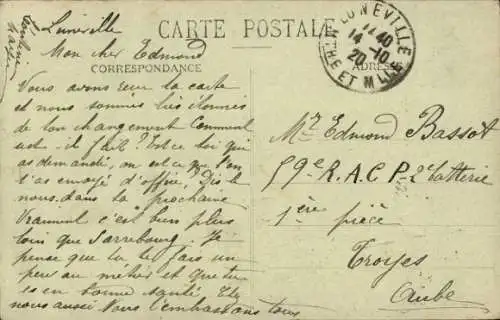 Luneville
CARTE POSTALE
Mon cher Edmond
CORRESPONDANCE
ADRESSE
LUNEVILLE
14 40
14 -10
20
MTHE ET MLLE
Vous avons reçu ta carte
et nous sommes très étonnés
de ton changement Comment
est il fait? Est ce toi qui
as demandé, ou est ce que l'on
t'as envoyé d'office, Dis le
nous dans la prochaine
Vraiment c'est bien plus
loin que Sarrebourg. Je
pense que tu te fais un
peu au métier et que tu
es en bonne santé
nous aussi Nous t'embrassons tous
Mr Edmond Bassot
59e R.A.C P- 2e batterie
1ère pièce
Troyes
Aube